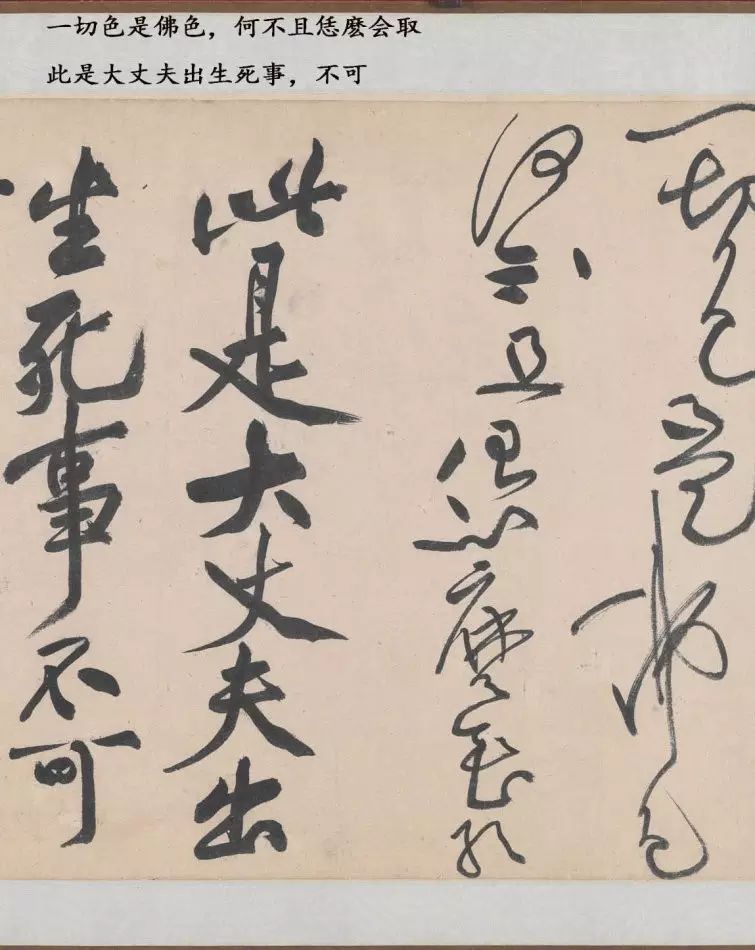 一切色是佛色，何不且恁麽会取
此是大丈夫出生死事，不可
一切色是佛色
何不且恁麽會取
此是大丈夫出
生死事不可